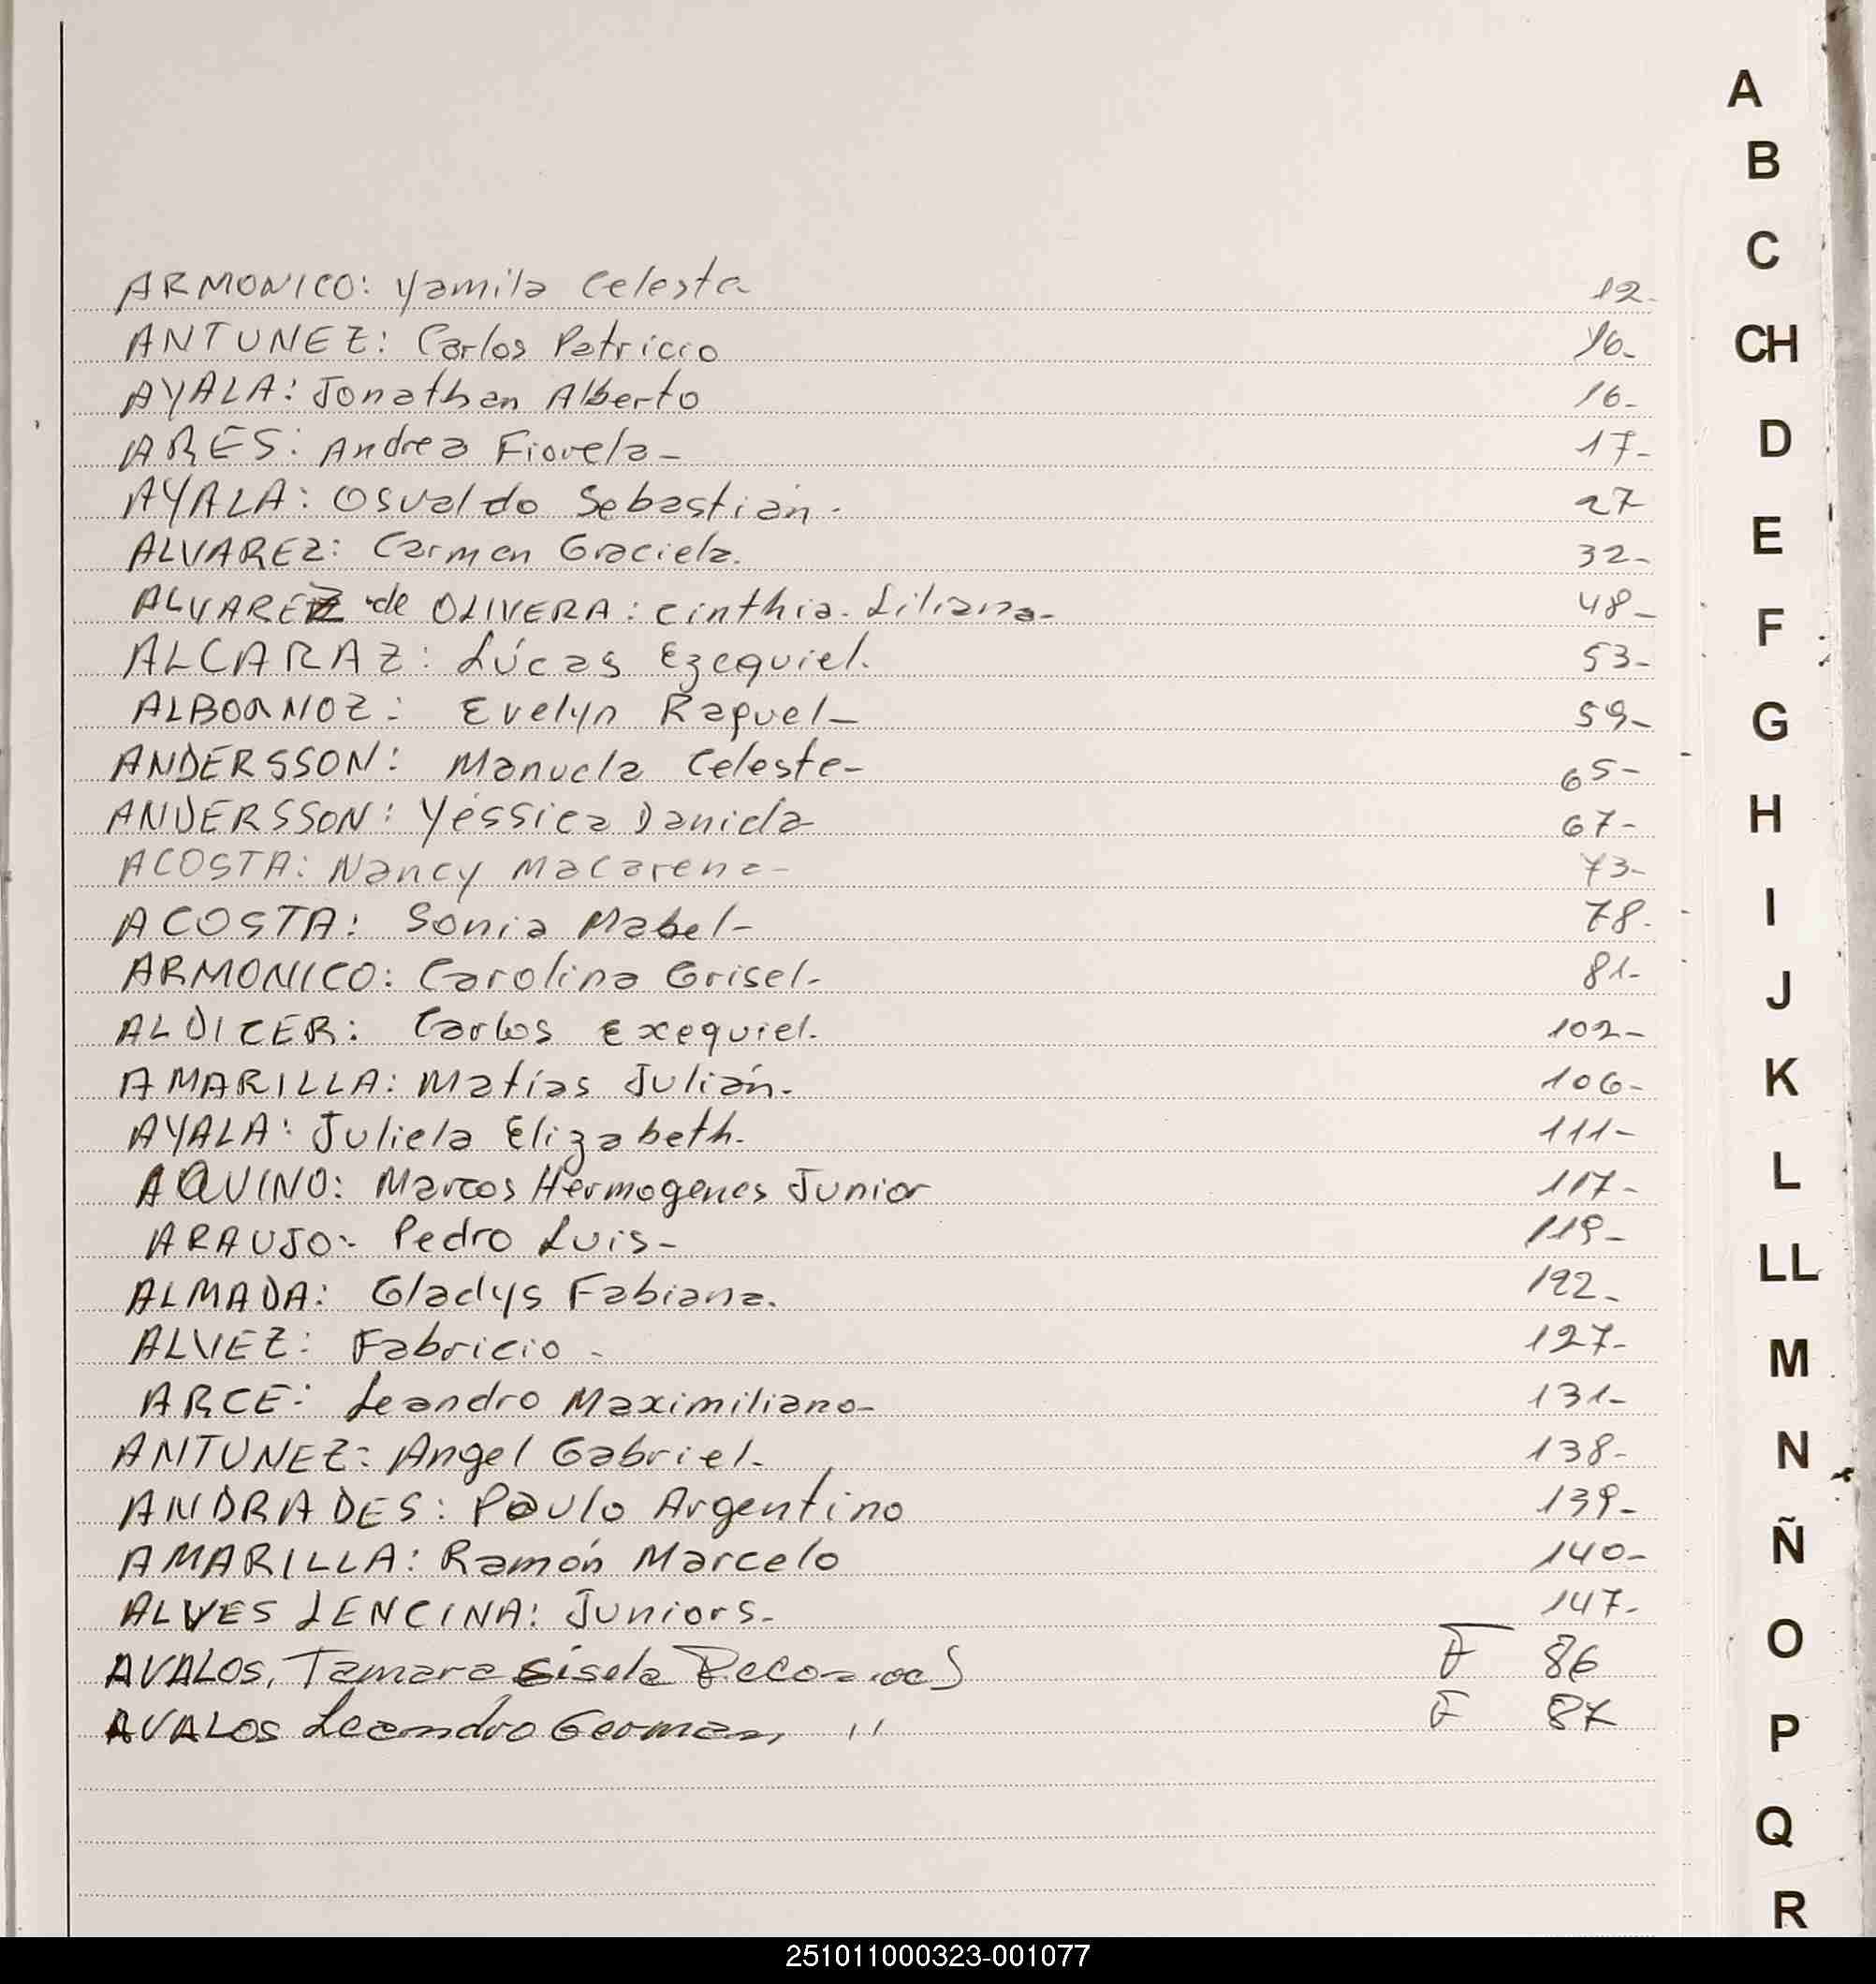 A
B
C
ARMONICO: Yamila Celeste 12-
ANTUNEZ: Carlos Patricio 16- CH
AYALA: Jonathan Alberto 16-
ARES: Andrea Fiorela- 17- D
AYALA: Osvaldo Sebastián. 27
ALVAREZ: Carmen Graciela. 32- E
ALVAREZ de OLIVERA: Cinthia. Liliana- 48- F
ALCARAZ: Lúcas Ezequiel. 53-
ALBORNOZ: Evelyn Raquel- 59- G
ANDERSSON: Manuela Celeste- 65-
ANDERSSON: Yéssica Daniela 67- H
ACOSTA: Nancy Macarena- 73-
ACOSTA: Sonia Mabel- 78- I
ARMONICO: Carolina Grisel- 81- J
ALDICER: Carlos Exequiel. 102-
AMARILLA: Matías Julián. 106- K
AYALA: Juliela Elizabeth. 111-
AQUINO: Marcos Hermogenes Junior 117- L
ARAUJO: Pedro Luis- 119-
ALMADA: Gladys Fabiana. 122- LL
ALVEZ: Fabricio. 127- M
ARCE: Leandro Maximiliano- 131-
ANTUNEZ: Angel Gabriel. 138- N
ANDRADES: Paulo Argentino 139-
AMARILLA: Ramón Marcelo 140- Ñ
ALVES LENCINA: Juniors. 147-
AVALOS, Tamara Gisela F 86 O
AVALOS Leandro German, " F 87 P
Q
R
251011000323-001077